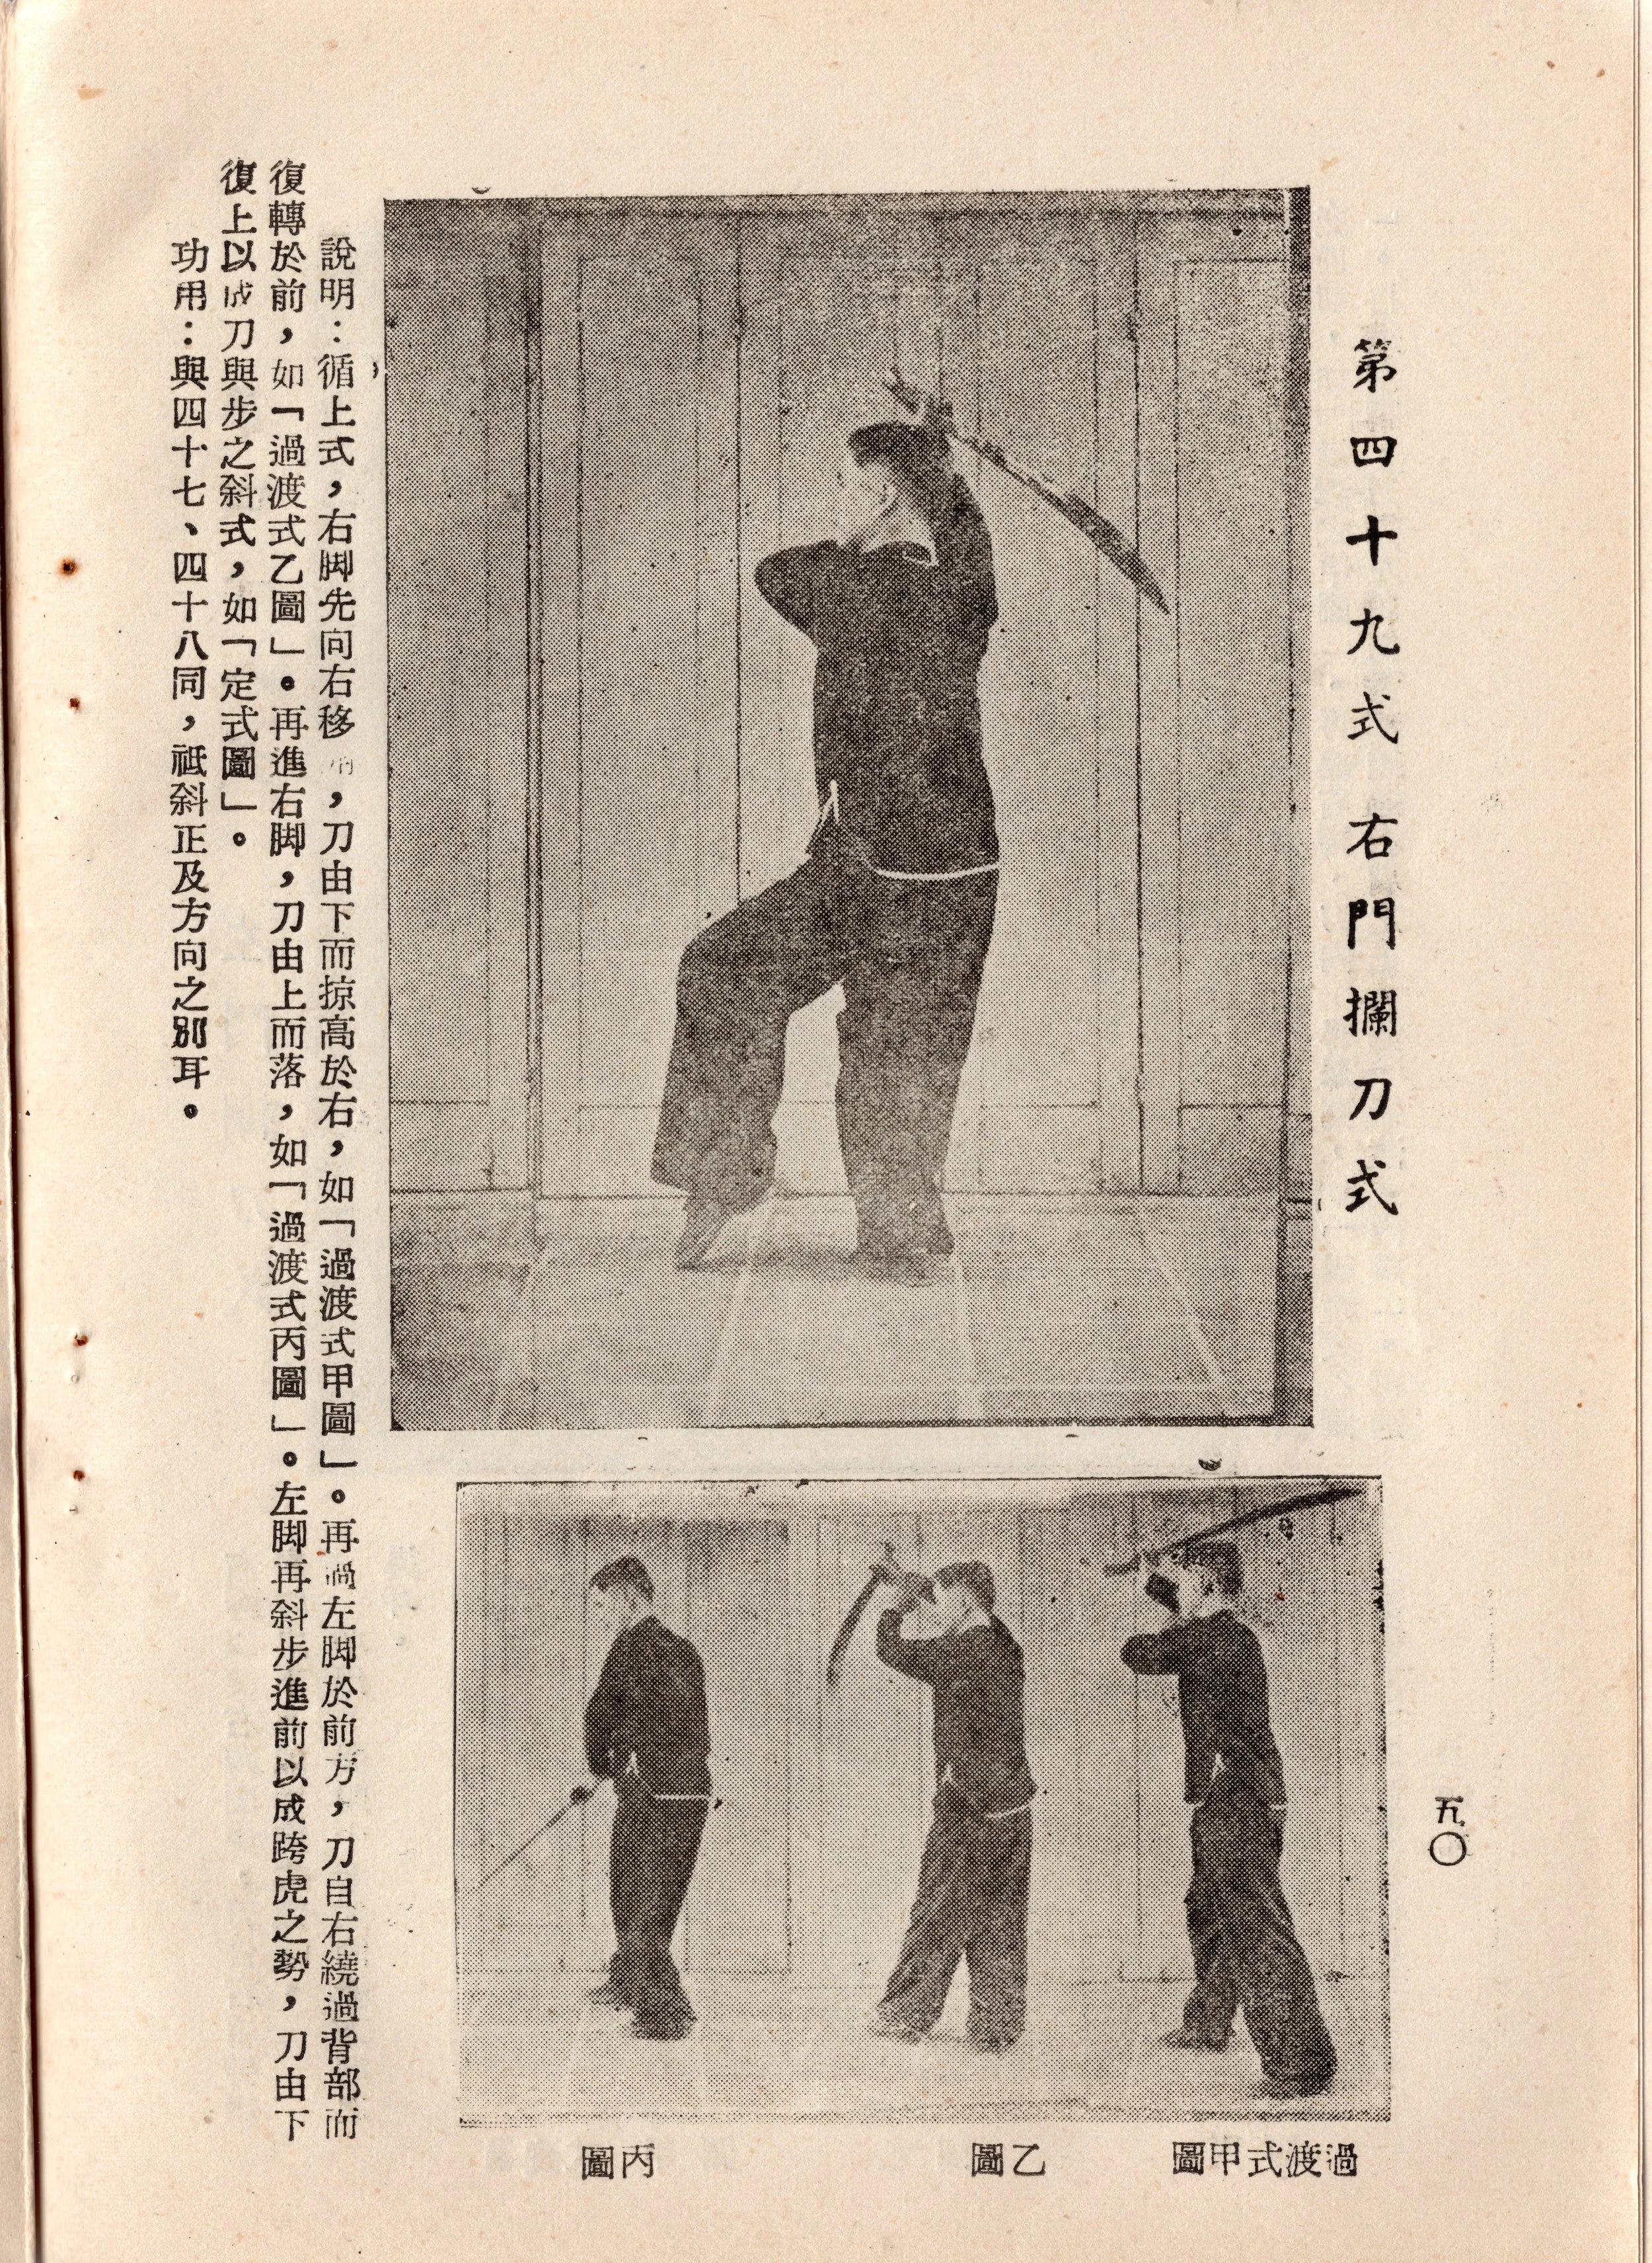 第四十九式 右門攔刀式
五〇
過渡式甲圖
乙圖
丙圖
說明：循上式，右脚先向右移，刀由下而掠高於右，如「過渡式甲圖」。再過左脚於前方，刀自右繞過背部而
復轉於前，如「過渡式乙圖」。再進右脚，刀由上而落，如「過渡式丙圖」。左脚再斜步進前以成跨虎之勢，刀由下
復上以成刀與步之斜式，如「定式圖」。
功用：與四十七、四十八同，祗斜正及方向之別耳。